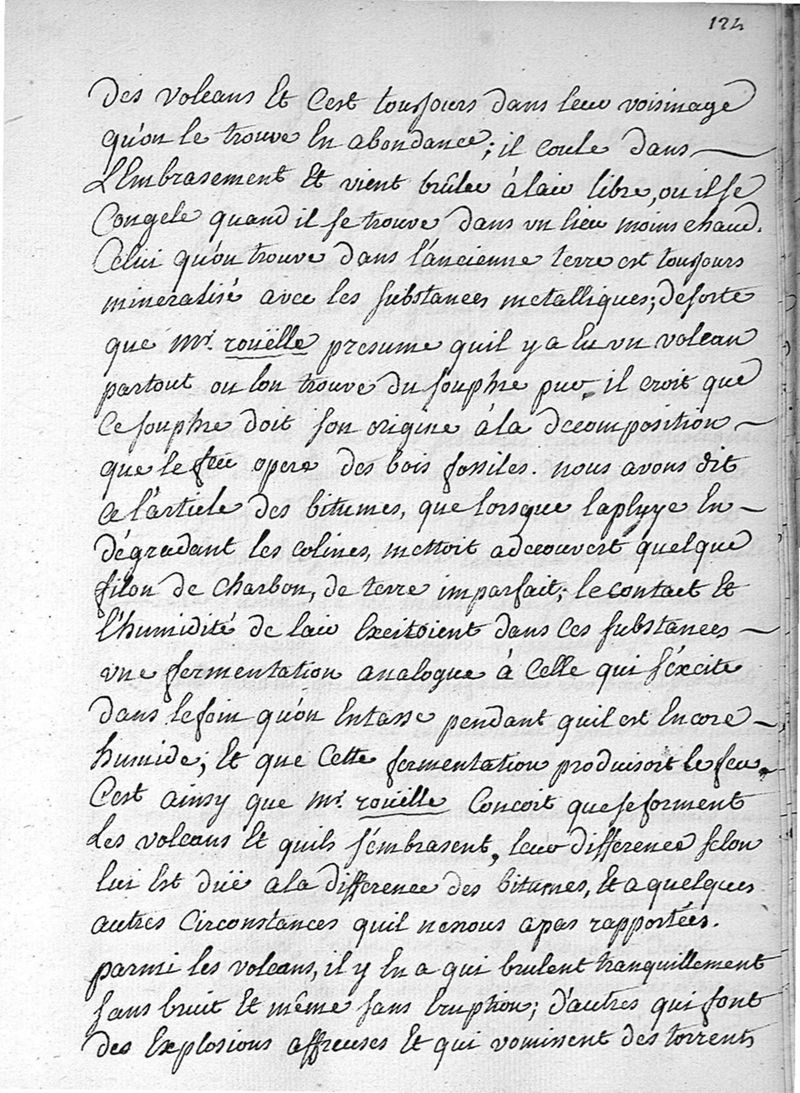 124
des volcans et c'est toujours dans leur voisinage
qu'on le trouve en abondance; il coule dans
L'Embrasement et vient brûler à lair libre, ou il se
Congele quand il se trouve dans vn lieu moins chaud.
Celui qu'on trouve dans l'ancienne terre est toujours
mineralisé avec les substances metalliques; de sorte
que Mr. rouëlle presume quil y a eu vn volcan
partout ou lon trouve du souphre pur. il croit que
ce souphre doit son origine à la decomposition
que le feu opere des bois fossiles. nous avons dit
a l'article des bitumes, que lorsque la pluye en
dégradant les colines, mettoit a decouvert quelque
filon de charbon, de terre imparfait; le contact et
l'humidité de lair excitoient dans ces substances
vne fermentation analogue à celle qui s'éxcite
dans le foin qu'on entasse pendant quil est encore
humide; et que cette fermentation produisoit le feu.
C'est ainsy que Mr. rouëlle concoit que se forment
Les volcans et quils s'émbrasent, leur difference selon
lui est duë a la difference des bitumes, et a quelques
autres circonstances quil ne nous a pas rapportées.
parmi les volcans, il y en a qui brulent tranquillement
sans bruit et même sans eruption; d'autres qui font
des explosions affreuses et qui vomissent des torrents